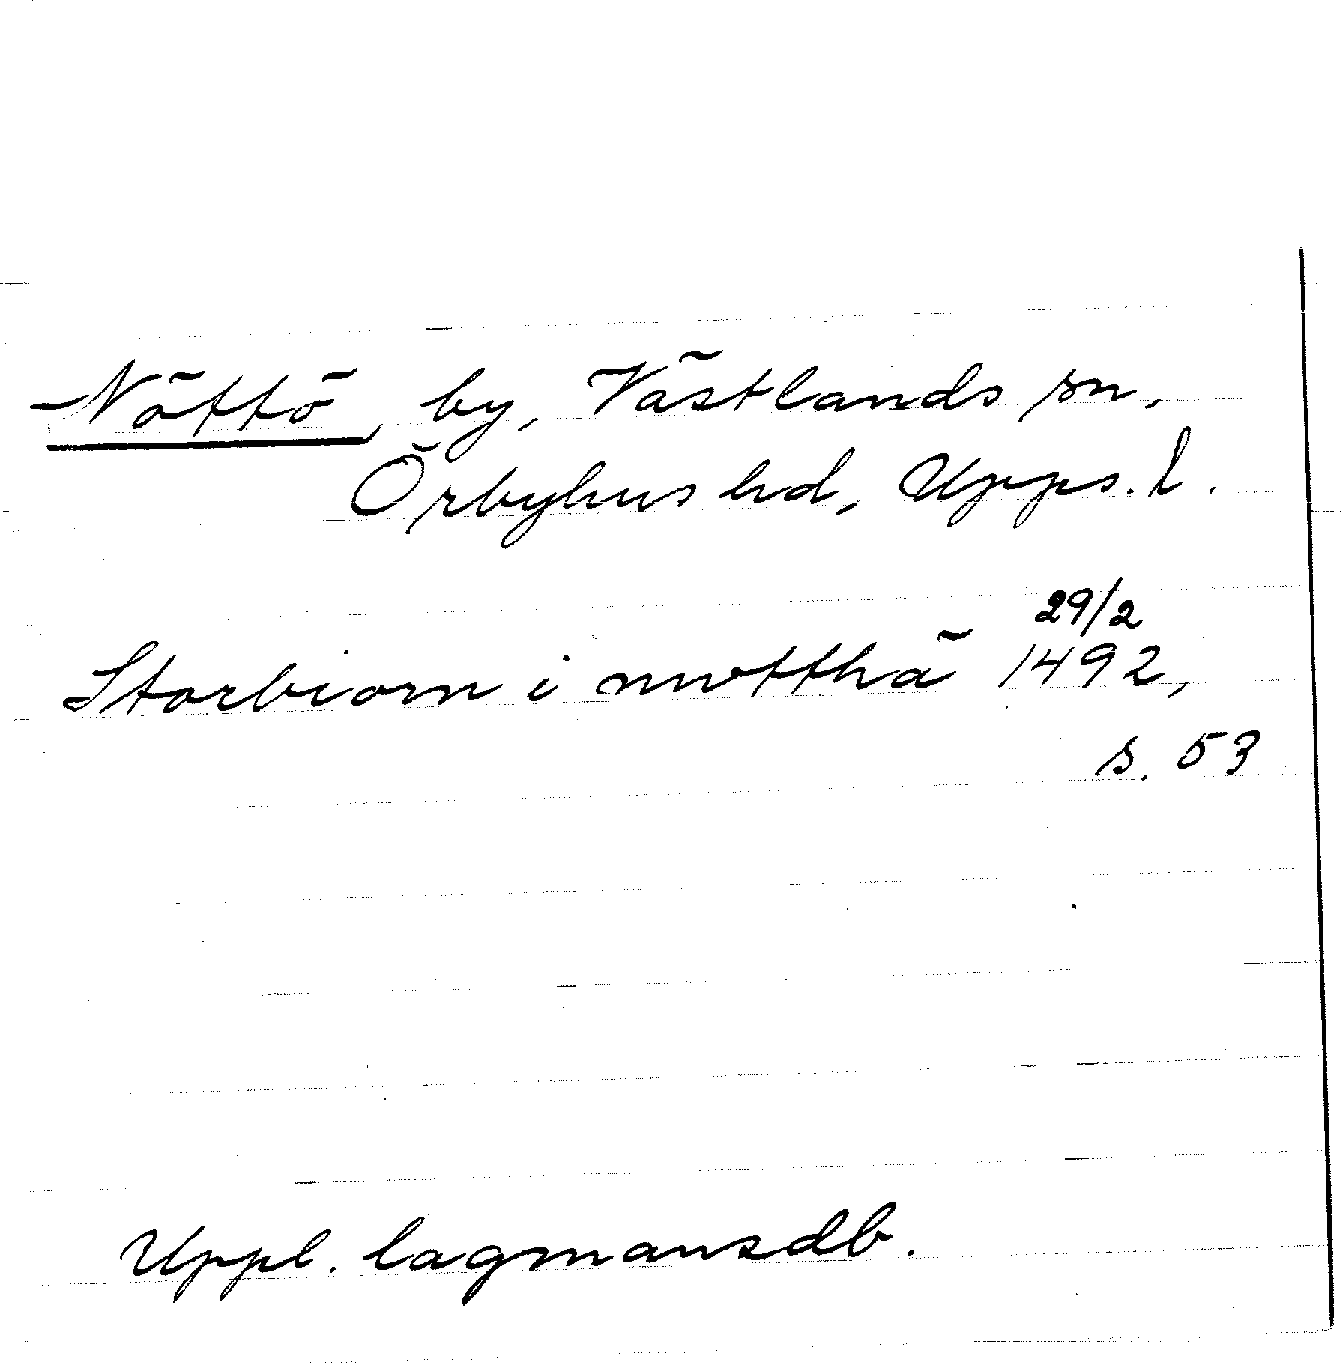 Nöttö, by, Västlands sn,
Örbyhus hd, Upps. l.
29/2
Storbiorn i nwtthä 1492,
s. 53
Uppl. lagmansdb.